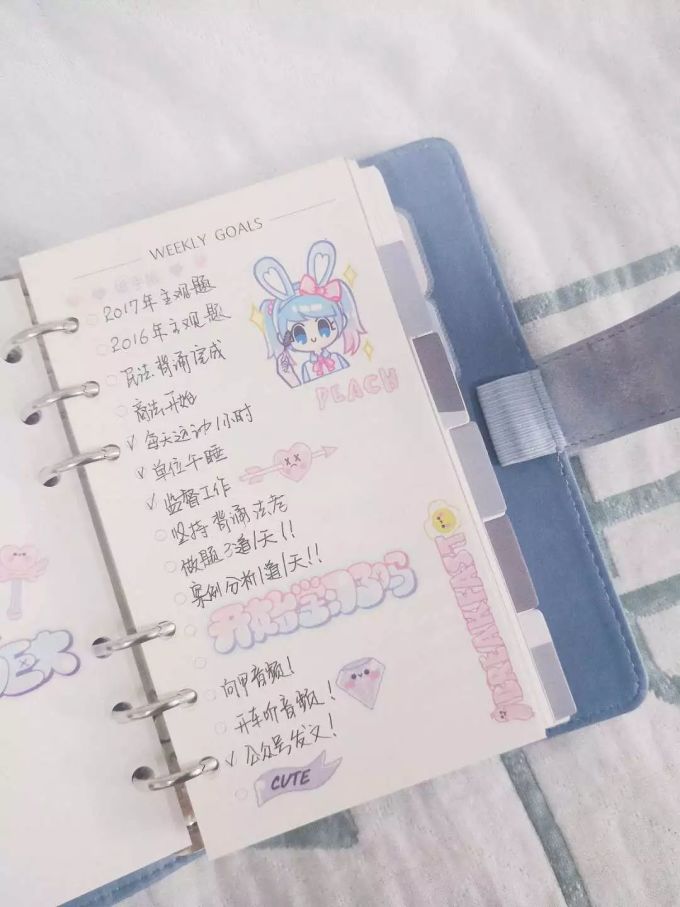 WEEKLY GOALS
2017年主观题
2016年主观题
民法背诵完成
商法开始
✓ 每天运动1小时
✓ 单位午睡
✓ 监督工作
坚持背诵法考
做题3道1天!!
案例分析1道1天!!
开始学习了吗
向甲音频!
开车听音频!
✓ 公众号发文!
CUTE
PEACH
BREAKFAST
大